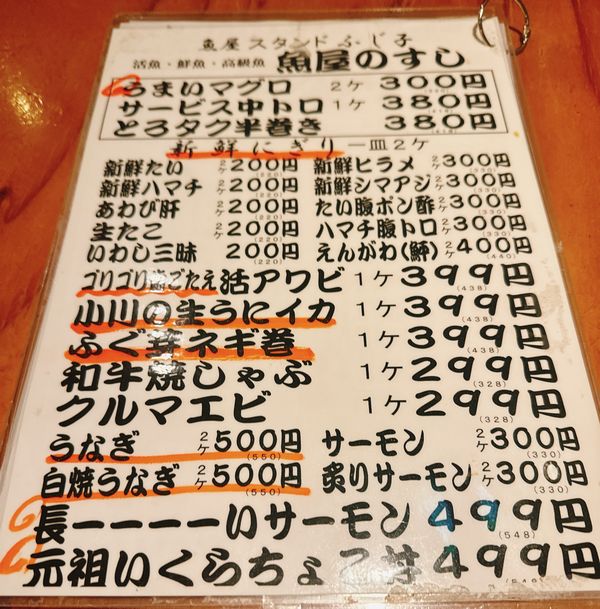 魚屋スタンドふじ子
活魚・鮮魚・高級魚 魚屋のすし
うまいマグロ 2ケ 300円
サービス中トロ 1ケ 380円 (418)
とろタク半巻き 380円 (418)
新鮮にぎり 一皿2ケ
新鮮たい 2ケ 200円 (220) 新鮮ヒラメ 2ケ 300円 (330)
新鮮ハマチ 2ケ 200円 (220) 新鮮シマアジ 2ケ 300円 (330)
あわび肝 2ケ 200円 (220) たい腹ポン酢 2ケ 300円 (330)
生たこ 2ケ 200円 (220) ハマチ腹トロ 2ケ 300円 (330)
いわし三昧 200円 (220) えんがわ 2ケ 400円 (440)
ゴリゴリ歯ごたえ活アワビ 1ケ 399円 (438)
小川の生うにイカ 1ケ 399円 (438)
ふぐ芽ネギ巻 1ケ 399円 (438)
和牛焼しゃぶ 1ケ 299円 (328)
クルマエビ 1ケ 299円 (328)
うなぎ 2ケ 500円 (550) サーモン 2ケ 300円 (330)
白焼うなぎ 2ケ 500円 (550) 炙りサーモン 2ケ 300円 (330)
長ーーーーいサーモン 499円 (548)
元祖いくらちょこ丼 499円